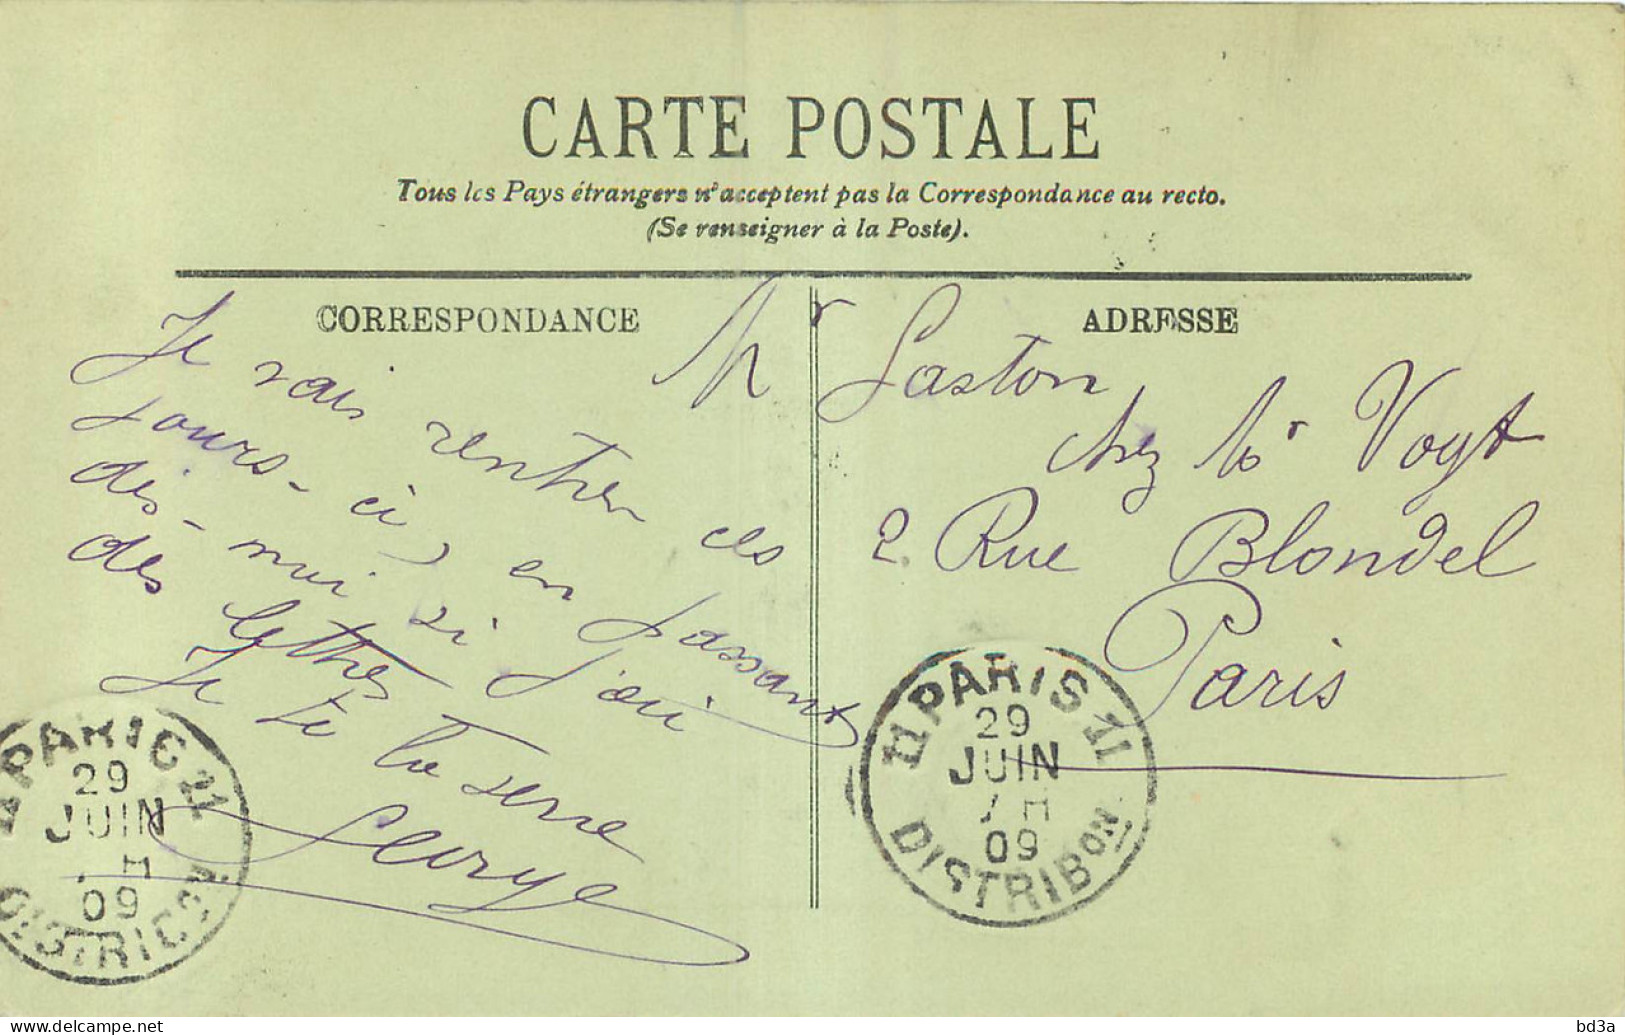 CARTE POSTALE
Tous les Pays étrangers n'acceptent pas la Correspondance au recto.
(Se renseigner à la Poste).
CORRESPONDANCE
Je vais rentrer ces
jours-ci, en passant
dis-moi si j'ai
des lettres
Je te la serre
George
ADRESSE
Mr Gaston
chez Mr Vogt
2 Rue Blondel
Paris
PARIS 11
29
JUIN
7 H
09
DISTRIBON
PARIS 11
29
JUIN
H
09
DISTRIBON
delcampe.net
bd3a